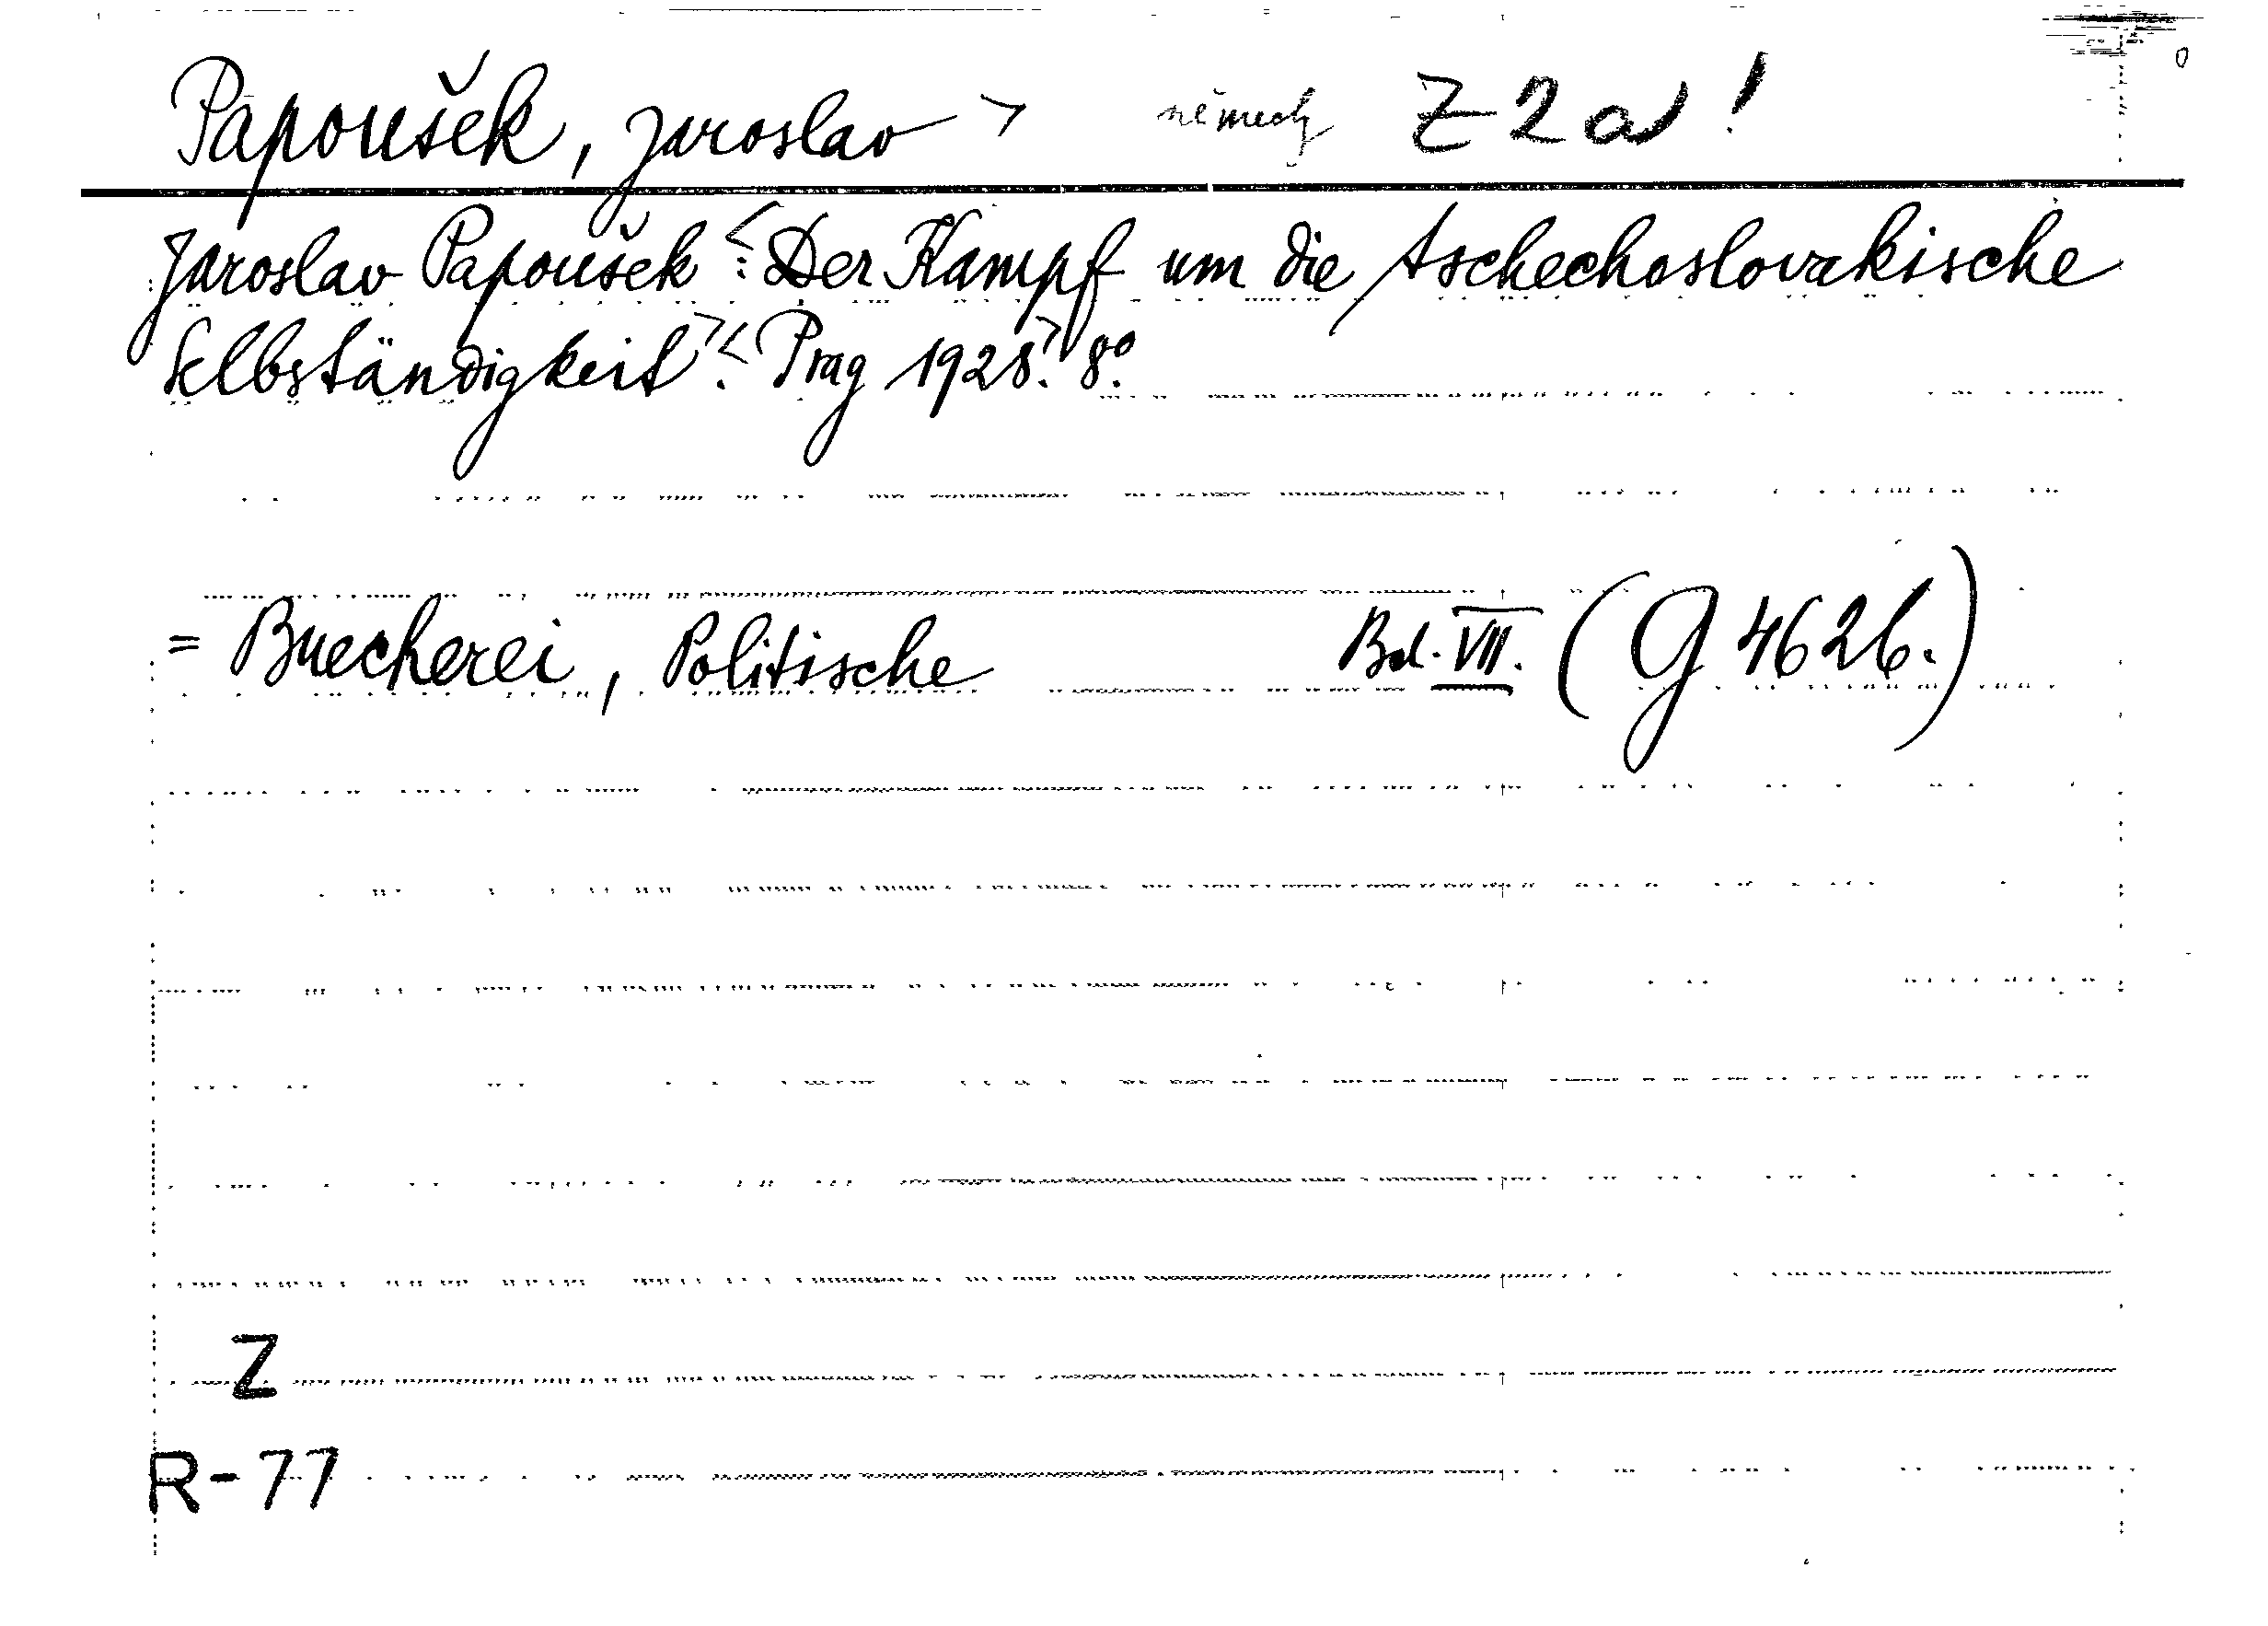 Papoušek, Jaroslav > německy Z 2 a !
Jaroslav Papoušek <: Der Kampf um die tschechoslovakische
Selbständigkeit>.< Prag 1928.> 8º.
= Buecherei, Politische Bd. VII. (G 4626.)
Z
R-77